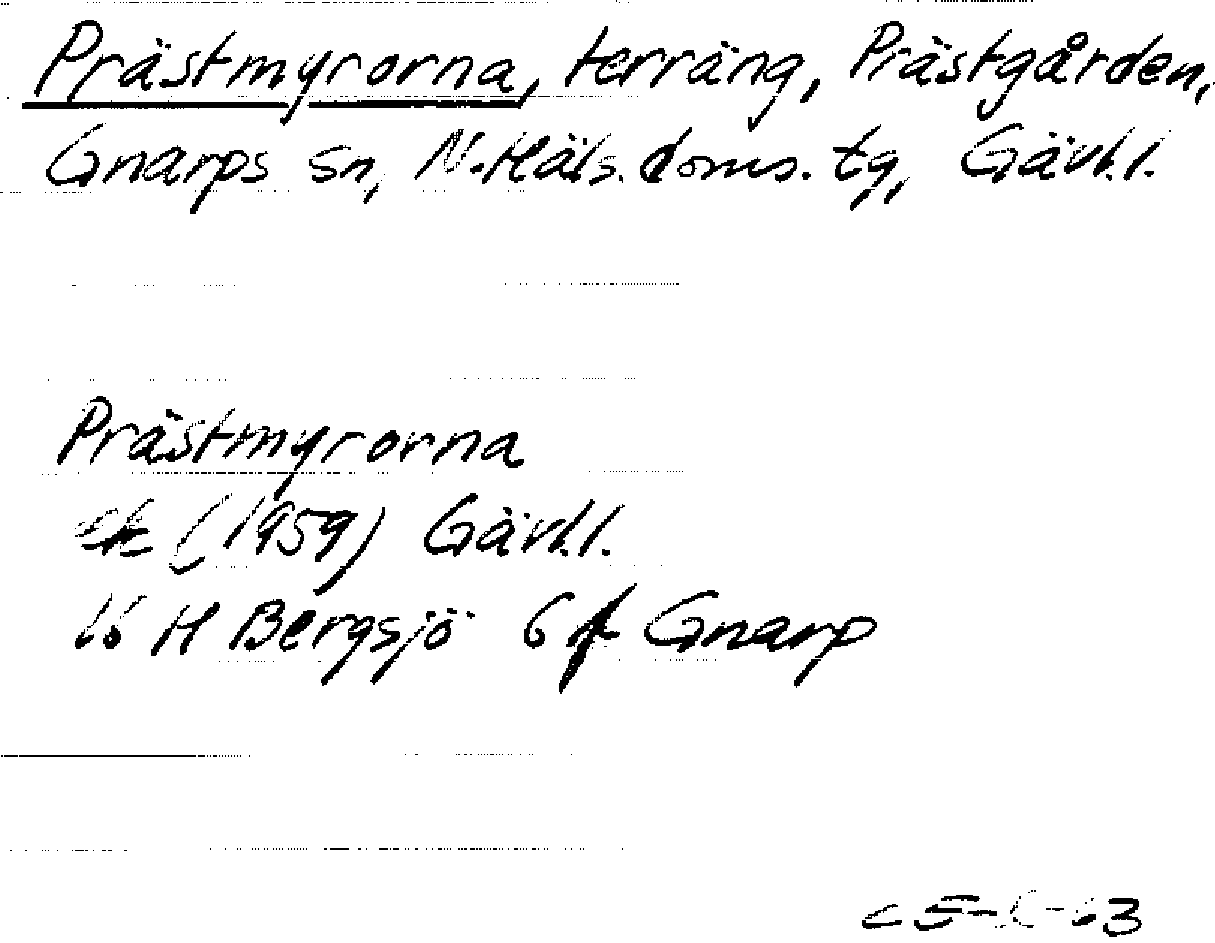 Prästmyrorna, terräng, Prästgården,
Gnarps sn, N.Häls.doms.tg, Gävl.l.
Prästmyrorna
ek (1959) Gävl.l.
16 H Bergsjö 6 f Gnarp